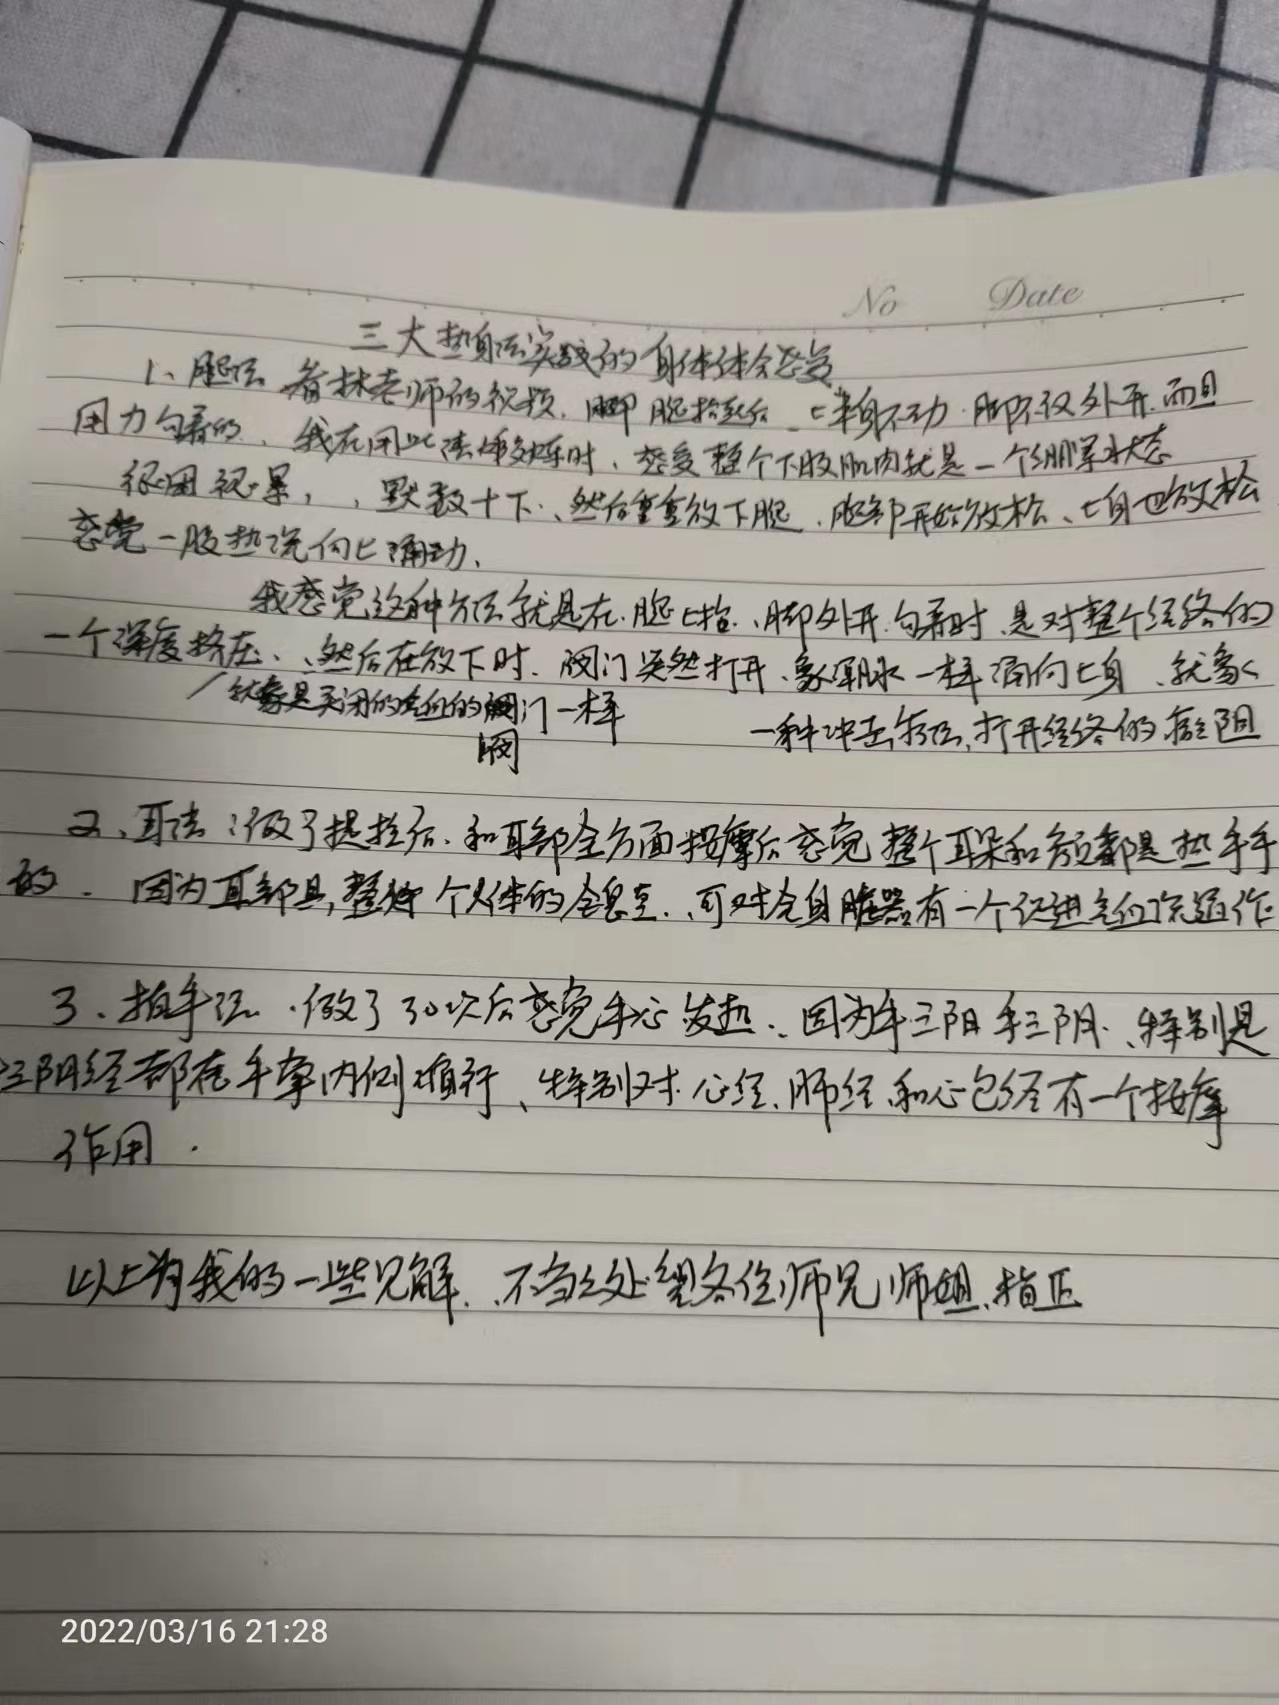 No Date
三大热身法实践的身体体会感受
1、腿法 看林老师的视频、脚 腿抬起后 上半身不动、脚不仅外开、而且
用力勾着的、我在用此法锻炼时、感受整个下肢肌肉就是一个绷紧状态
很困很累,、默数十下、然后重重放下腿、腿部开始放松、上身也放松
感觉一股热流向上涌动、
我感觉这种方法就是在、腿上抬、脚外开、勾着时、是对整个经络的
一个深度挤压、、然后在放下时、阀门突然打开、象潮水一样涌向上身、就象
就象是关闭的气血的阀门一样
阀
一种冲击疗法,打开经络的瘀阻
2、耳法:做了提拉后、和耳部全方面按摩后感觉整个耳朵和颈都是热乎乎
的. 因为耳部是,整个人体的全息室、可对全身脏器有一个促进气血流通作
3、拍手法、做了30次后感觉手心发热、因为手三阳手三阴、特别是
三阴经都在手掌内侧循行、特别对心经、肺经、和心包经有一个按摩
作用.
以上为我的一些见解、不当之处望各位师兄师姐、指正
2022/03/16 21:28